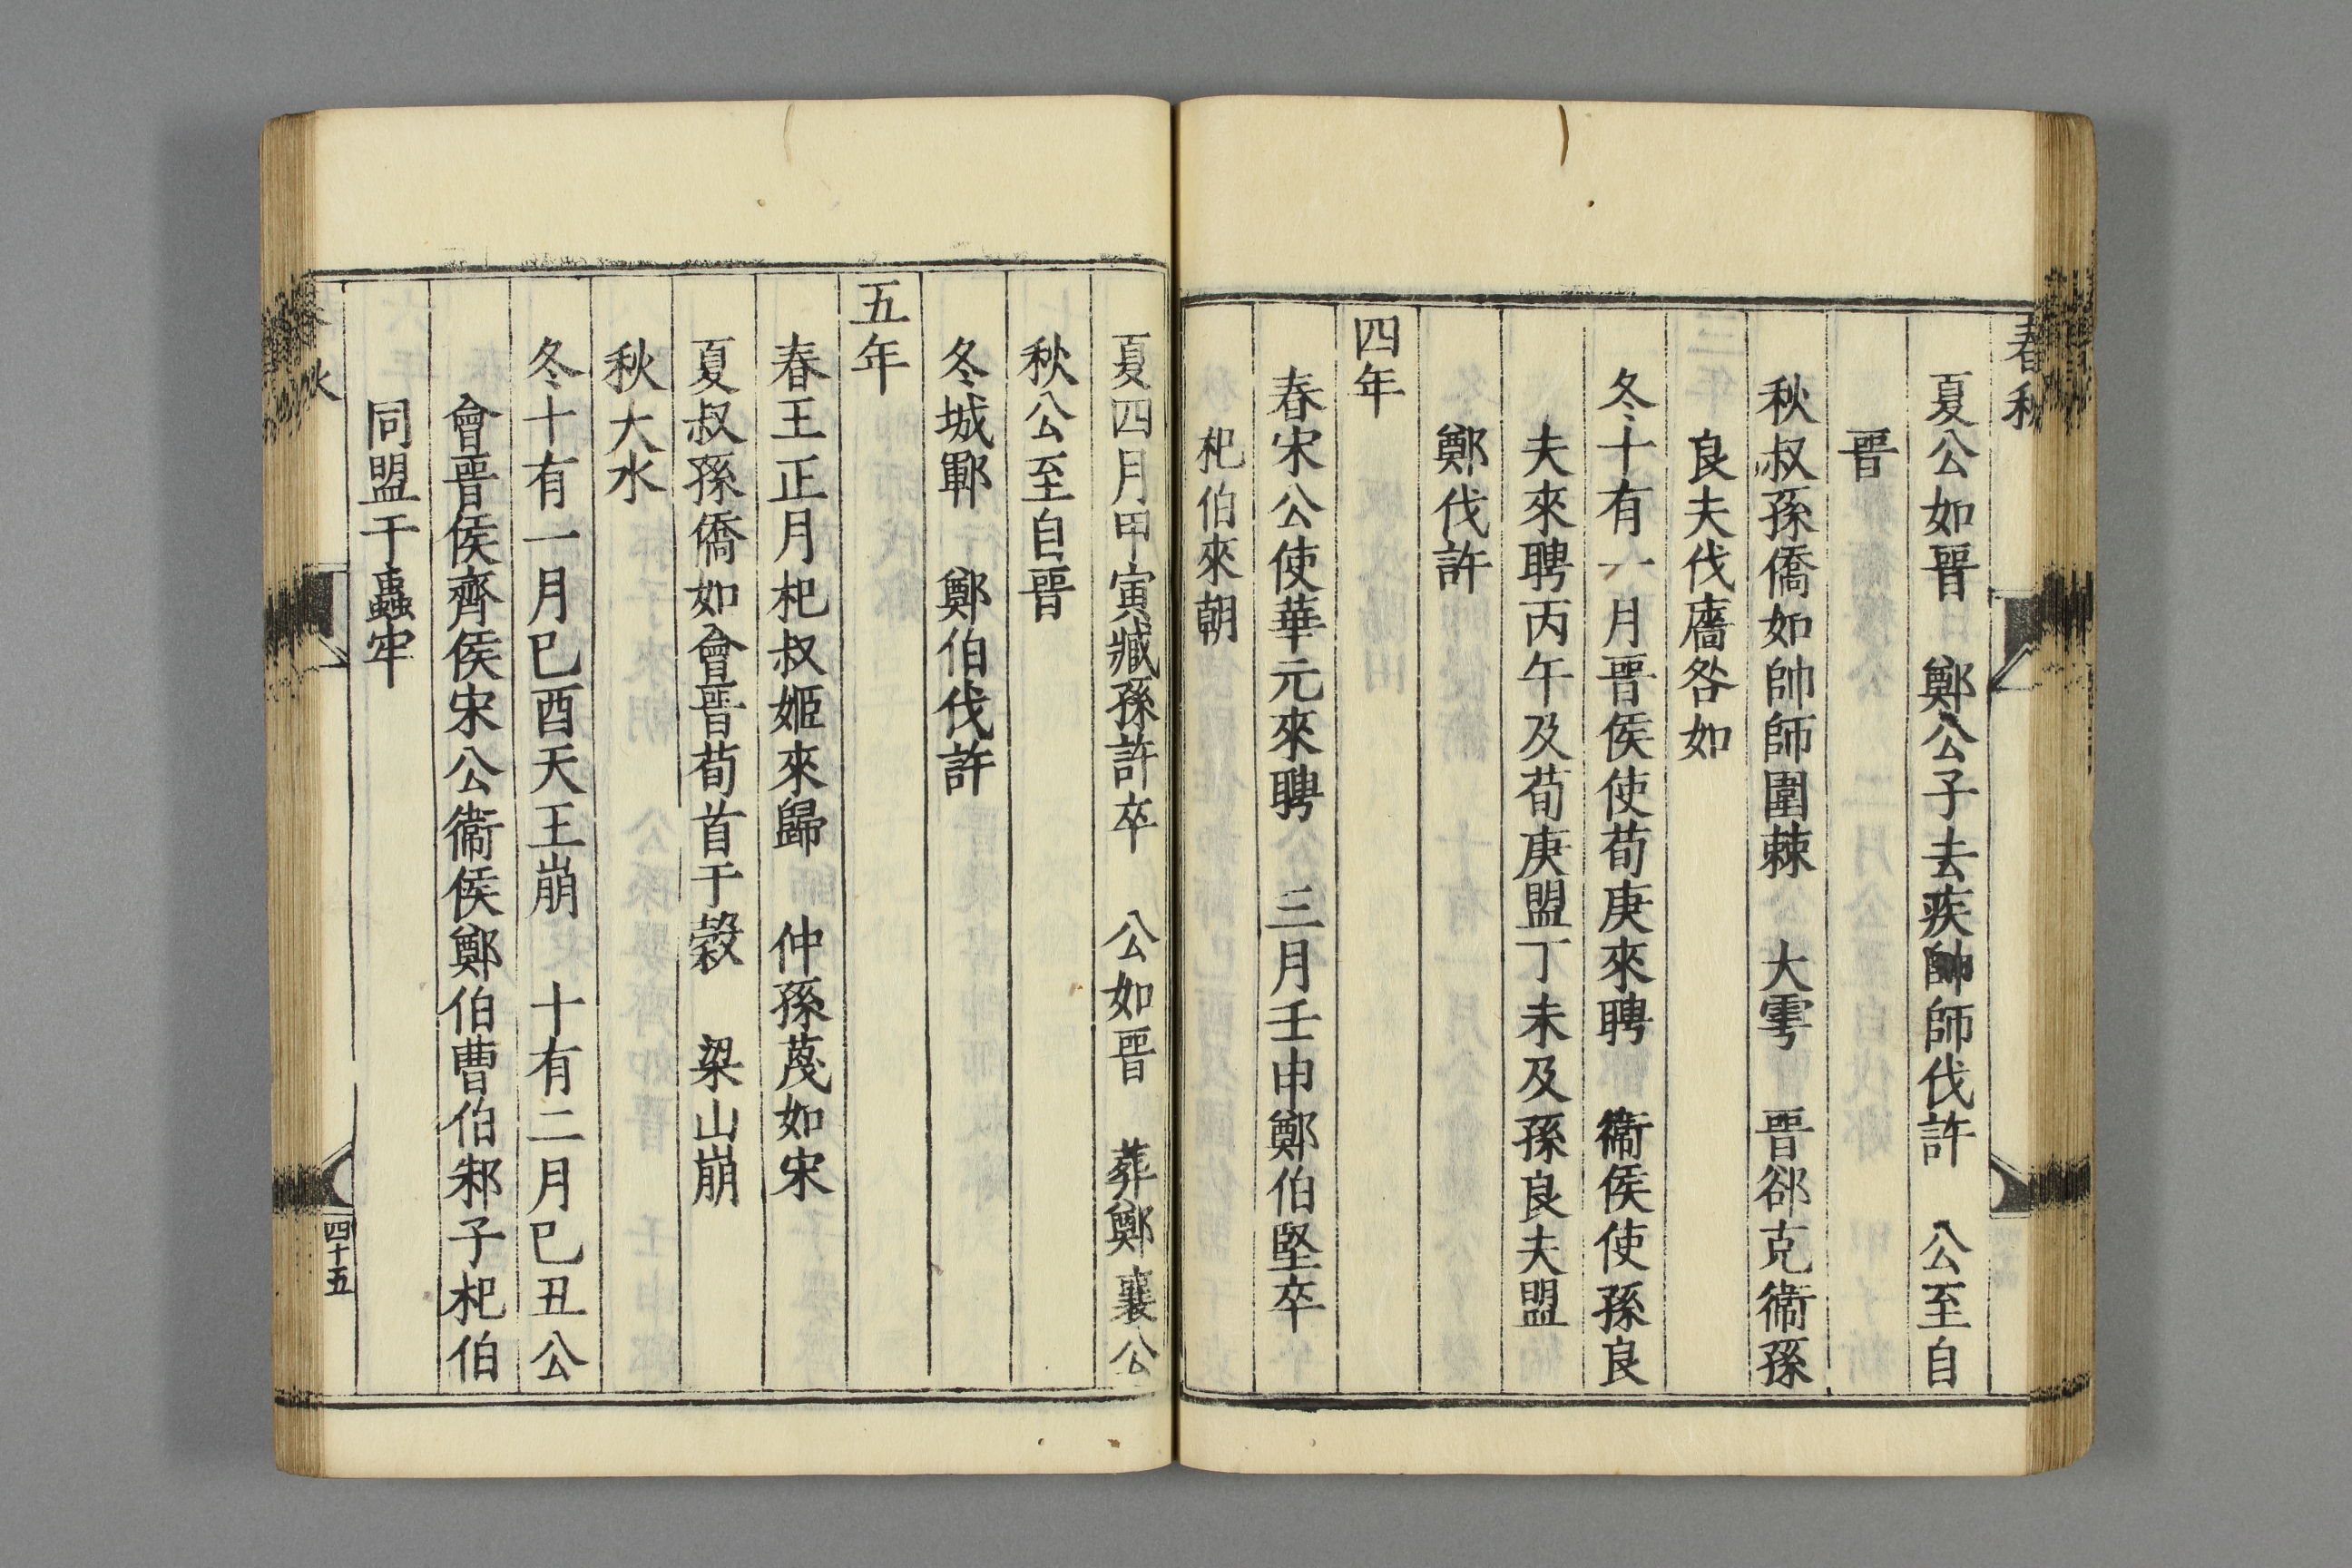 春秋
夏公如晉　鄭公子去疾帥師伐許　公至自
晉
秋叔孫僑如帥師圍棘　大雩　晉郤克衞孫
良夫伐廧咎如
冬十有一月晉侯使荀庚來聘　衞侯使孫良
夫來聘丙午及荀庚盟丁未及孫良夫盟
鄭伐許
四年
春宋公使華元來聘　三月壬申鄭伯堅卒
杞伯來朝
夏四月甲寅臧孫許卒　公如晉　葬鄭襄公
秋公至自晉
冬城鄆　鄭伯伐許
五年
春王正月杞叔姬來歸　仲孫蔑如宋
夏叔孫僑如會晉荀首于穀　梁山崩
秋大水
冬十有一月己酉天王崩　十有二月己丑公
會晉侯齊侯宋公衞侯鄭伯曹伯邾子杞伯
同盟于蟲牢
春秋
四十五